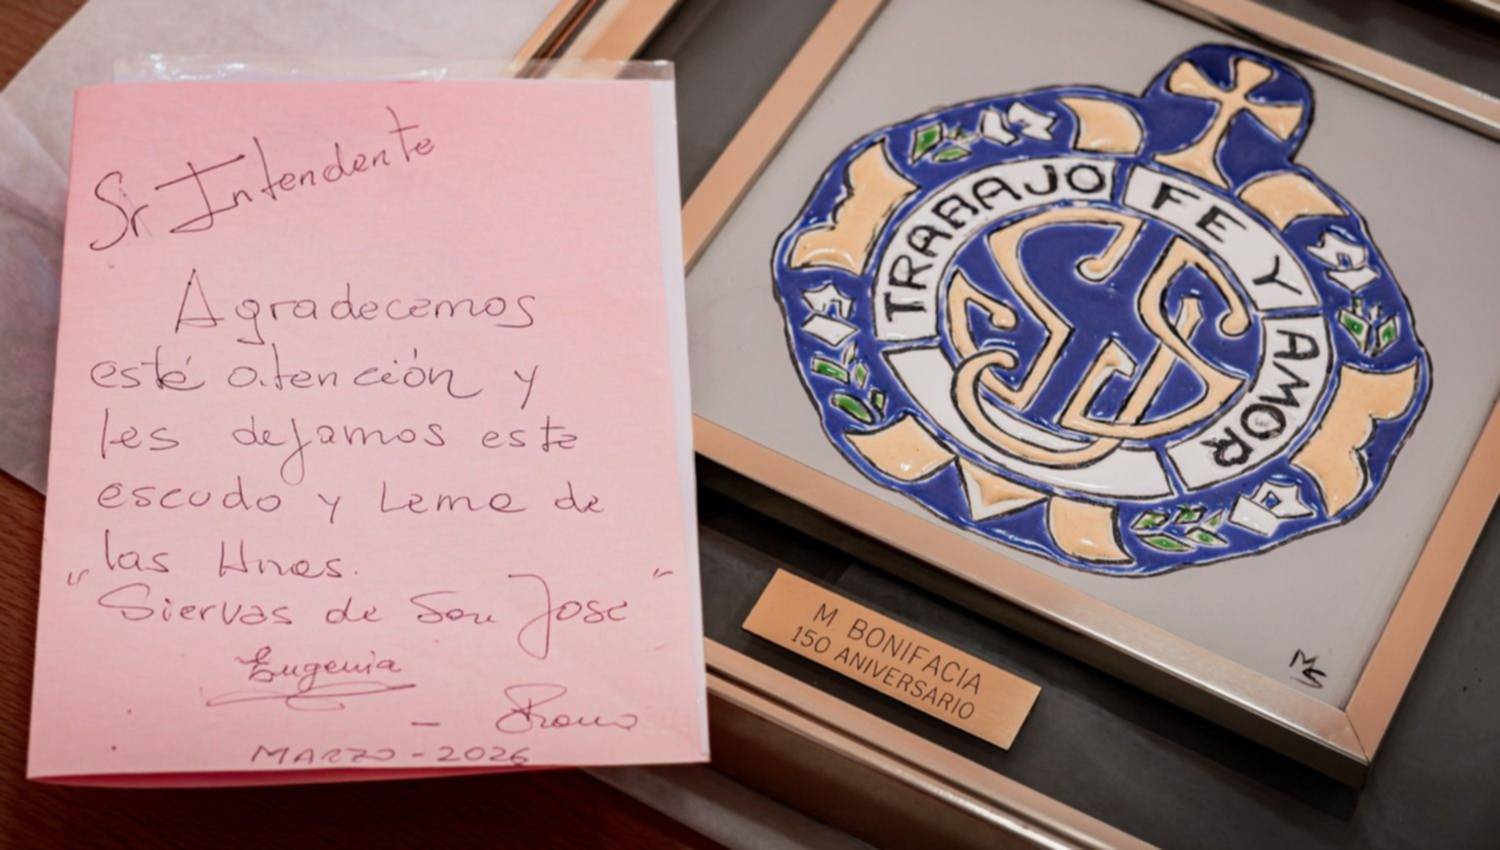 Sr Intendente
Agradecemos
esté atención y
les dejamos este
escudo y Lema de
las Hnas.
"Siervas de San José"
Eugenia
MARZO - 2026
TRABAJO FE Y AMOR
MS
M BONIFACIA
150 ANIVERSARIO